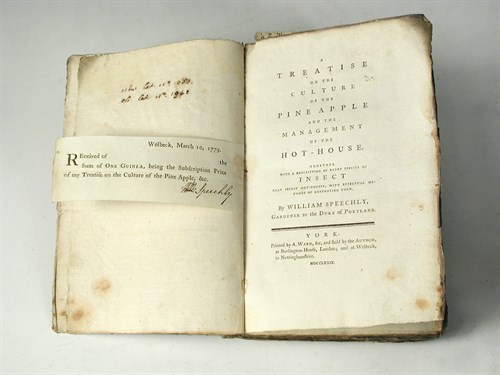 Welbeck, March 10, 1779.
REceived of the
Sum of ONE GUINEA, being the Subscription Price
of my Treatise on the Culture of the Pine Apple, &c.
Wm Speechly
A
TREATISE
ON THE
CULTURE
OF THE
PINE APPLE
AND THE
MANAGEMENT
OF THE
HOT-HOUSE.
TOGETHER
WITH A DESCRIPTION OF EVERY SPECIES OF
INSECT
THAT INFEST HOT-HOUSES, WITH EFFECTUAL ME-
THODS OF DESTROYING THEM.
By WILLIAM SPEECHLY,
GARDENER TO THE DUKE OF PORTLAND.
YORK:
Printed by A. WARD, for, and Sold by the AUTHOR,
at Burlington-House, London; and at Welbeck,
in Nottinghamshire.
MDCCLXXIX.